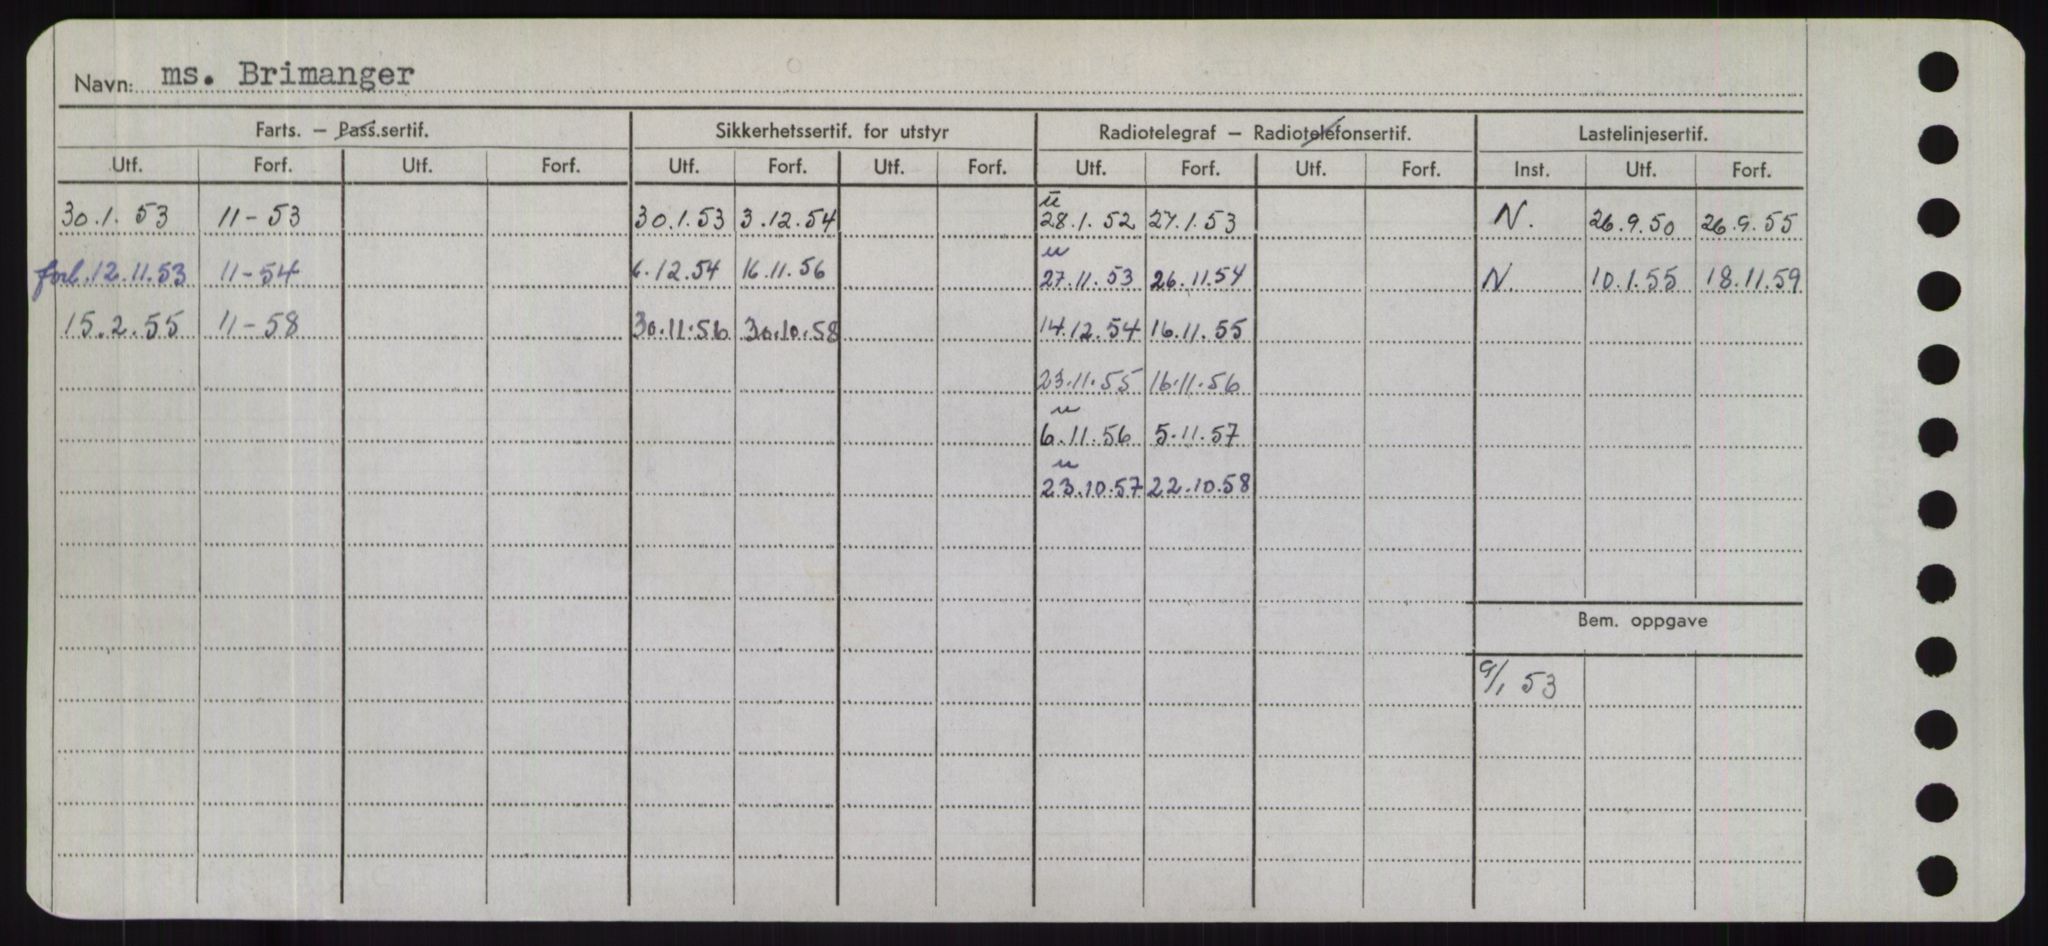 Navn: ms. Brimanger
Farts. – Pass.sertif. Sikkerhetssertif. for utstyr Radiotelegraf – Radiotelefonsertif. Lastelinjesertif.
Utf. Forf. Utf. Forf. Utf. Forf. Utf. Forf. Utf. Forf. Utf. Forf. Inst. Utf. Forf.
u
30.1.53 11-53 30.1.53 3.12.54 28.1.52 27.1.53 N. 26.9.50 26.9.55
u
forl. 12.11.53 11-54 6.12.54 16.11.56 27.11.53 26.11.54 N. 10.1.55 18.11.59
15.2.55 11-58 30.11.56 30.10.58 14.12.54 16.11.55
23.11.55 16.11.56
u
6.11.56 5.11.57
u
23.10.57 22.10.58
Bem. oppgave
9/1 53